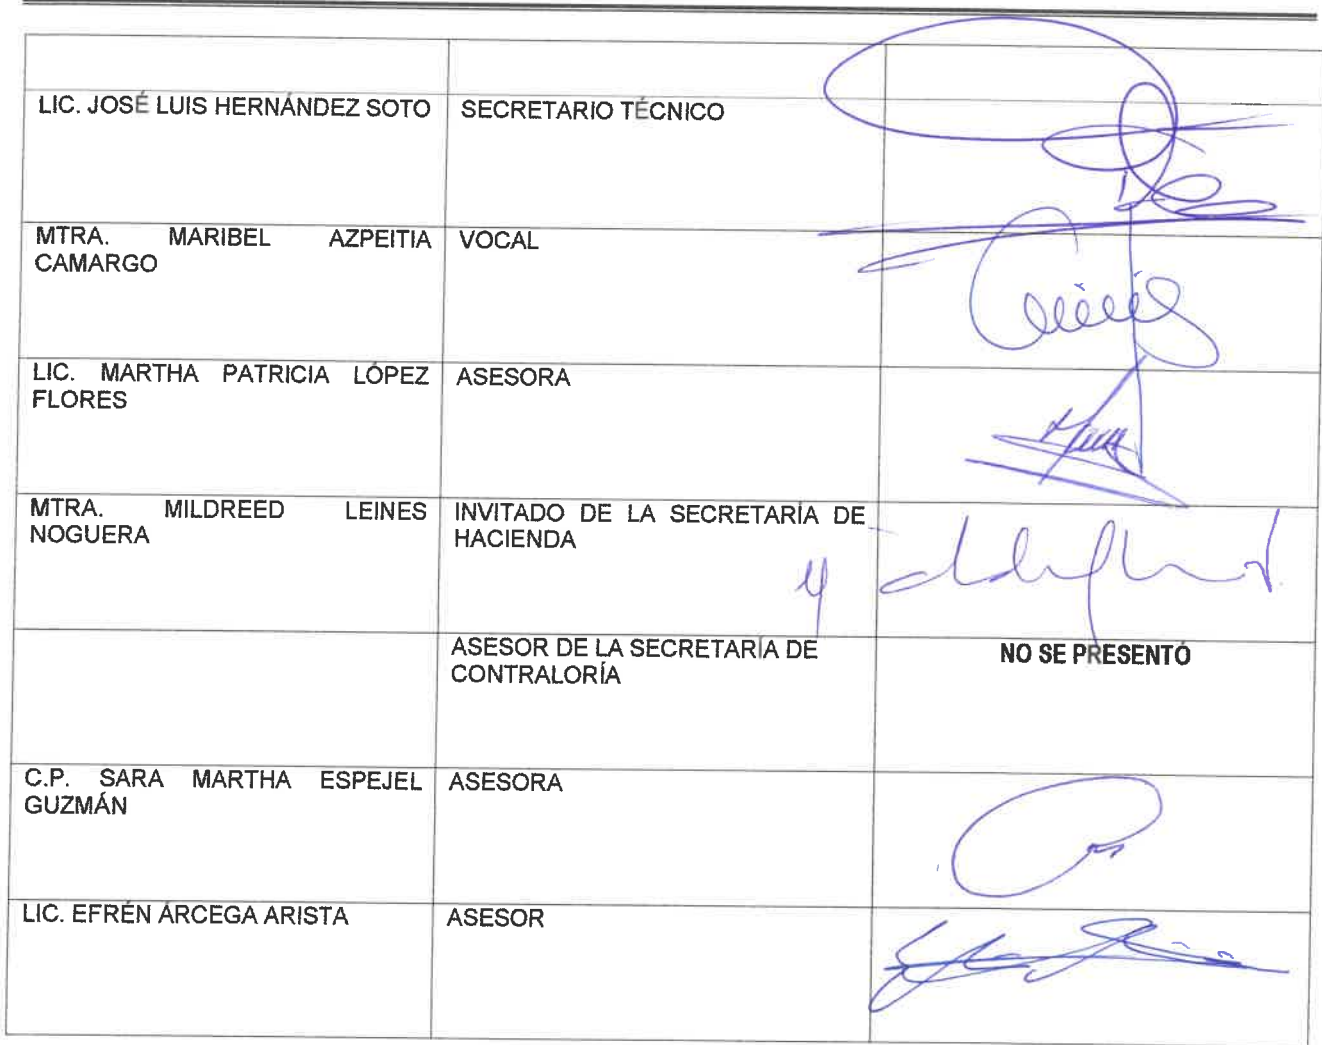 LIC. JOSÉ LUIS HERNÁNDEZ SOTO
SECRETARIO TÉCNICO
MTRA. MARIBEL AZPEITIA
CAMARGO
VOCAL
LIC. MARTHA PATRICIA LÓPEZ
FLORES
ASESORA
MTRA. MILDREED LEINES
NOGUERA
INVITADO DE LA SECRETARÍA DE
HACIENDA
ASESOR DE LA SECRETARÍA DE
CONTRALORÍA
NO SE PRESENTÓ
C.P. SARA MARTHA ESPEJEL
GUZMÁN
ASESORA
LIC. EFRÉN ÁRCEGA ARISTA
ASESOR